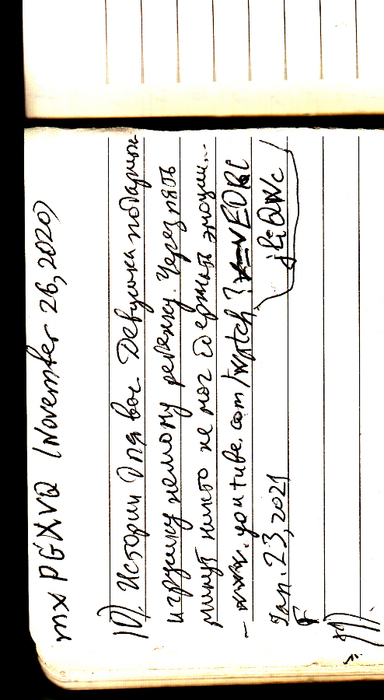 mxPGXVQ (November 26, 2020)
10). Истории для вас. Девушка подарила
игрушку немому ребенку. Через пять
минут никто не мог сдержать эмоции...
- www.youtube.com/watch?
Jan. 23, 2021